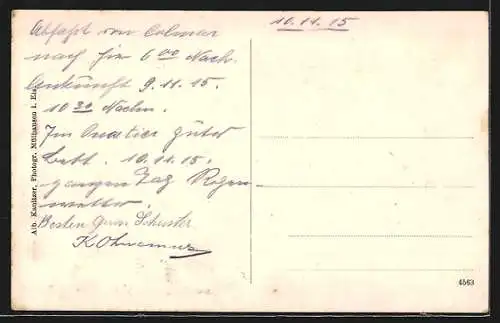 10.11.15
Abfahrt von Colmar
nach hier 6 00 Nach
Ankunft 9.11.15.
10 30 Nachm.
Im Quatier guter
Bett. 10.11.15.
ganzen Tag Regen-
wetter.
Besten Gruss Schuster
Alb. Kanitzer, Photogr., Mülhausen i. Els.
4563